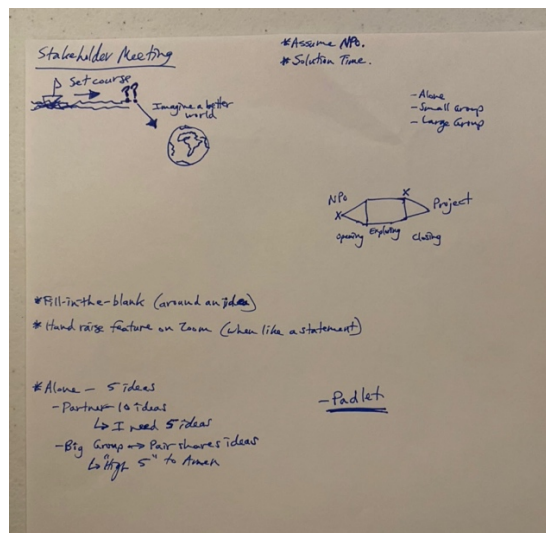 Stakeholder Meeting
*Assume NPO.
*Solution Time.
Set course
??
Imagine a better
world
-Alone
-Small Group
-Large Group
NPO
X
X
Project
Opening
Exploring
Closing
*Fill-in-the-blank (around an idea)
*Hand raise feature on Zoom (when like a statement)
*Alone - 5 ideas
-Partner - 10 ideas
↳ I need 5 ideas
-Big Group → Pair shares ideas
↳ "High 5" to Armen
-Padlet